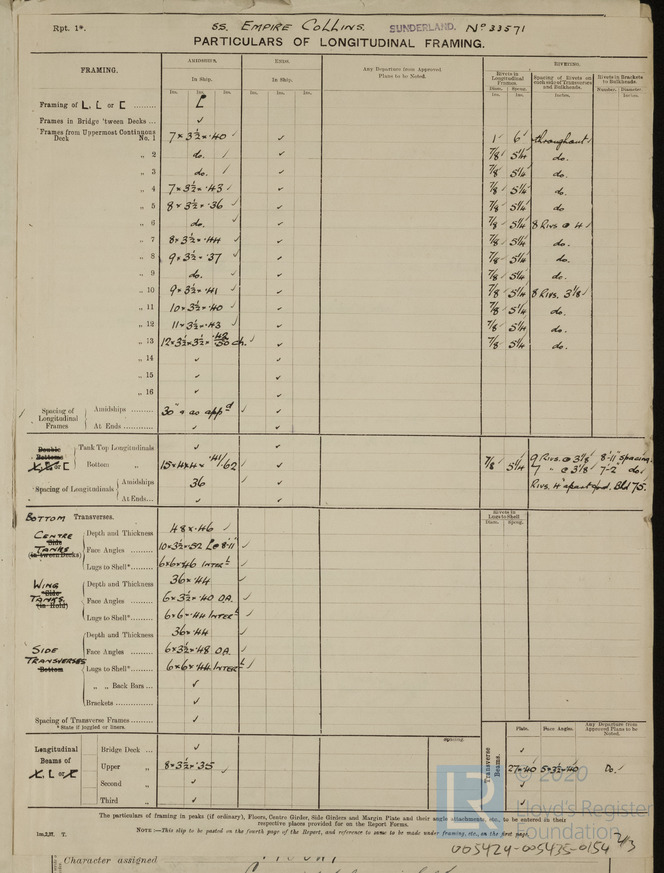 Rpt. 1*. SS. EMPIRE COLLINS. SUNDERLAND. No 33571
PARTICULARS OF LONGITUDINAL FRAMING.
FRAMING. AMIDSHIPS. ENDS. Any Departure from Approved Plans to be Noted. RIVETING.
In Ship. In Ship. Rivets in Longitudinal Frames Spacing of Rivets on each side of Transverses and Bulkheads. Rivets in Brackets to Bulkheads.
Ins. Ins. Ins. Ins. Ins. Ins. Diam. Ins. Spcng. Ins. Inches. Number. Diameter. Inches.
Framing of L, L or C [
Frames in Bridge 'tween Decks ... ✓
Frames from Uppermost Continuous Deck No. 1 7 × 3½ × .40 ✓ ✓ 1 6 throughout
„ 2 do. ✓ ✓ 7/8 5¼ do.
„ 3 do. ✓ ✓ 7/8 5¼ do.
„ 4 7 × 3½ × .43 ✓ ✓ 7/8 5¼ do.
„ 5 8 × 3½ × .36 ✓ ✓ 7/8 5¼ do
„ 6 do. ✓ ✓ 7/8 5¼ 8 Rivs @ 4
„ 7 8 × 3½ × .44 ✓ ✓ 7/8 5¼ do.
„ 8 9 × 3½ × .37 ✓ ✓ 7/8 5¼ do.
„ 9 do. ✓ ✓ 7/8 5¼ do.
„ 10 9 × 3½ × .41 ✓ ✓ 7/8 5¼ 8 Rivs. 3⅛
„ 11 10 × 3½ × .40 ✓ ✓ 7/8 5¼ do.
„ 12 11 × 3½ × .43 ✓ ✓ 7/8 5¼ do.
„ 13 12 × 3½ × 3½ × ch. ✓ 7/8 5¼ do.
„ 14 ✓ ✓
„ 15 ✓ ✓
„ 16 ✓ ✓
Spacing of Longitudinal Frames Amidships 30" & as appd ✓
At Ends ✓ ✓
Double Bottoms L, L or C Tank Top Longitudinals ✓ ✓
Bottom „ 15 × 4 × 4 × .41/.62 ✓ 7/8 5¼ 9 Rivs. @ 3⅛ 8'-11" spacing.
7 „ @ 3⅛ 7'-2" do.
Spacing of Longitudinals Amidships 36 ✓ Rivs. 4" apart Bhd 75.
At Ends... ✓ ✓
BOTTOM Transverses. Rivets in Lugs to Shell
Diam. Spcng.
CENTRE TANKS Side (in 'tween Decks) Depth and Thickness 48 × .46 ✓
Face Angles 10 × 3½ × .52 8'-11" ✓
Lugs to Shell* 6 × 6 × .46 INTERL ✓
WING TANKS. Side (in Hold) Depth and Thickness 36 × .44
Face Angles 6 × 3½ × .40 O.A. ✓
Lugs to Shell* 6 × 6 × .44 INTERL ✓
SIDE TRANSVERSES Bottom Depth and Thickness 36 × .44
Face Angles 6 × 3½ × .48 O.A.
Lugs to Shell* 6 × 6 × .44 INTERL ✓
„ „ Back Bars ... ✓
Brackets ✓
Spacing of Transverse Frames ✓
* State if joggled or liners.
Spacing. Transverse Beams. Plate. Face Angles. Any Departure from Approved Plans to be Noted.
Longitudinal Beams of L, L or C Bridge Deck ... ✓ ✓
Upper „ 8 × 3½ × .35 ✓ 27 × .40 5 × 3½ × .40 Do. ✓
Second „ ✓ ✓
Third „ ✓ ✓
The particulars of framing in peaks (if ordinary), Floors, Centre Girder, Side Girders and Margin Plate and their angle attachments, etc., to be entered in their respective places provided for on the Report Forms.
NOTE:—This slip to be pasted on the fourth page of the Report, and reference to same to be made under framing, etc., on the first page.
© 2020
Lloyd's Register
Foundation
005424-005435-0154 2/3
Character assigned